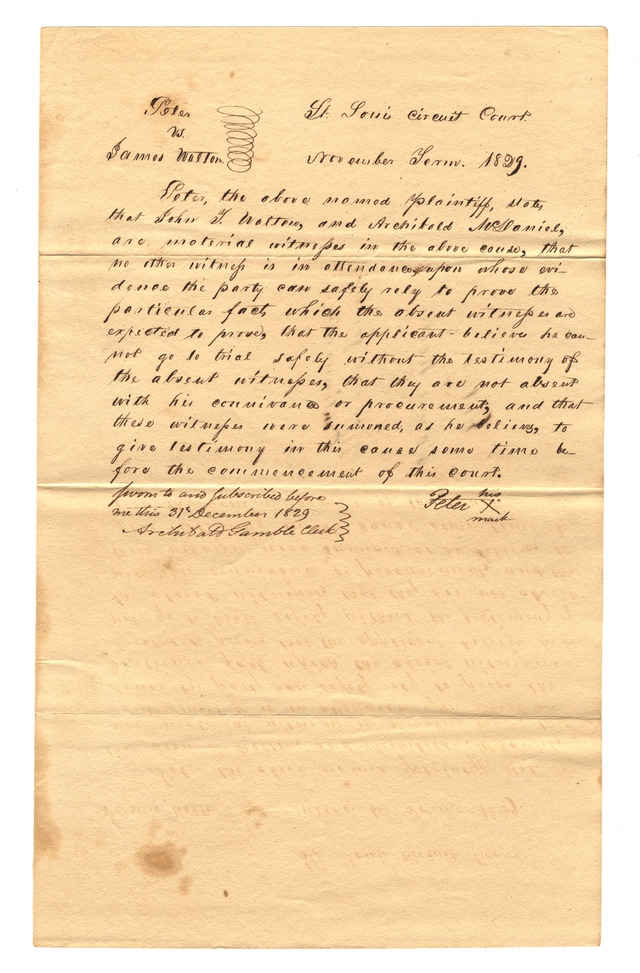 Peter St. Louis Circuit Court.
vs.
James Walton. November Term. 1829.
Peter, the above named Plaintiff, states
that John T. Walton, and Archibald McDaniel,
are material witnesses in the above cause, that
no other witness is in attendance upon whose evi-
dence the party can safely rely to prove the
particular fact, which the absent witnesses are
expected to prove, that the applicant believes he can-
not go to trial safely without the testimony of
the absent witnesses, that they are not absent
with his connivance or procurement, and that
these witnesses were sumoned, as he believes, to
give testimony in this cause some time be-
fore the commencement of this court.
Sworn to and subscribed before
me this 31st December 1829
Archibald Gamble Clerk
his
Peter X
mark